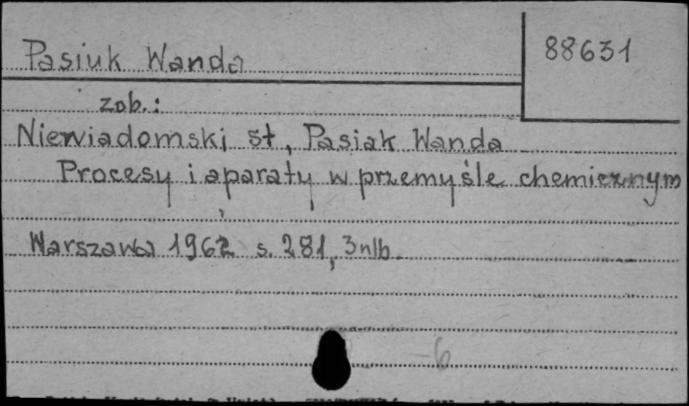 Pasiuk Wanda
88631
zob.:
Niewiadomski St, Pasiak Wanda
Procesy i aparaty w przemyśle chemicznym
Warszawa 1962 s. 281, 3nlb.
-6